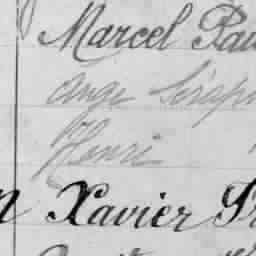 Marcel Pau
Ange Sérap
Henri
n Xavier Fr